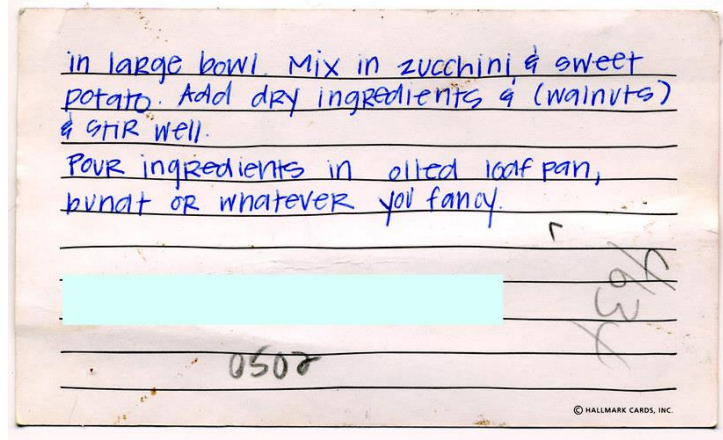 in large bowl. Mix in zucchini & sweet
potato. Add dry ingredients & (walnuts)
& stir well.
Pour ingredients in oiled loaf pan,
bundt or whatever you fancy.
4634
0502
© HALLMARK CARDS, INC.